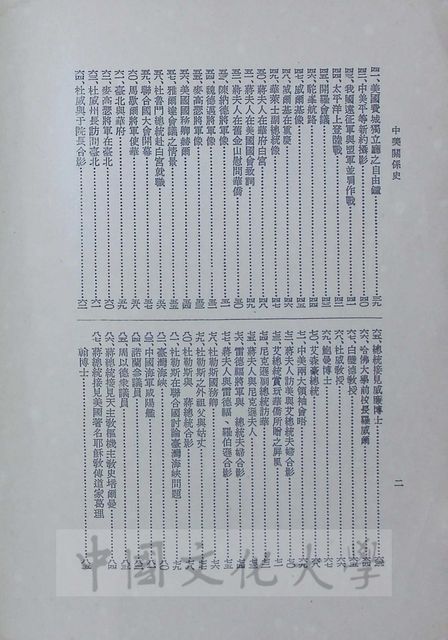 中美關係史
四一、美國費城獨立廳之自由鐘…三九
四二、中美平等新約攝影…四〇
四三、我國遠征軍與盟軍並肩作戰…四〇
四四、太平洋上登陸戰…四一
四五、開羅會議…四二
四六、駝峯航路…四三
四七、威爾基像
四八、威爾基在重慶
四九、華萊士副總統像
五〇、蔣夫人在華府白宮
五一、蔣夫人在美國國會致詞
五二、蔣夫人在舊金山慰問華僑
五三、陳納德將軍像
五四、魏德邁將軍像
五五、麥高瑟將軍像
五六、美國國務卿赫爾
五七、雅爾達會議之情景
五八、杜魯門總統赴白宮就職
五九、聯合國大會開幕
六〇、馬歇爾將軍使華
六一、臺北與華府
六二、麥高瑟將軍在臺北
六三、杜威州長訪問臺北…六一
六四、杜威與于院長合影…六二
六五、總統接見威廉博士
六六、哈佛大學前校長羅威爾
六七、白璧德教授
六八、杜威教授
六九、鮑曼博士
七〇、艾森豪總統
七一、中美兩大領袖會晤
七二、艾總統賞玩華僑所贈之屏風
七三、蔣夫人訪美與艾總統夫婦合影
七四、尼克遜副總統訪華
七五、蔣夫人與尼克遜夫人
七六、雷德福將軍與 總統夫婦合影
七七、蔣夫人與雷德福、羅伯遜合影
七八、杜勒斯國務卿
七九、杜勒斯之外祖父與姑丈
八〇、杜勒斯與 蔣總統合影
八一、杜勒斯在聯合國討論臺灣海峽問題
八二、臺灣海峽
八三、中國海軍咸陽艦
八四、諾蘭參議員
八五、周以德衆議員
八六、蔣總統接見天主敎樞機主敎史培爾曼
八七、蔣總統接見美國著名耶穌敎傳道家葛理
翰博士
二
中國文化大學